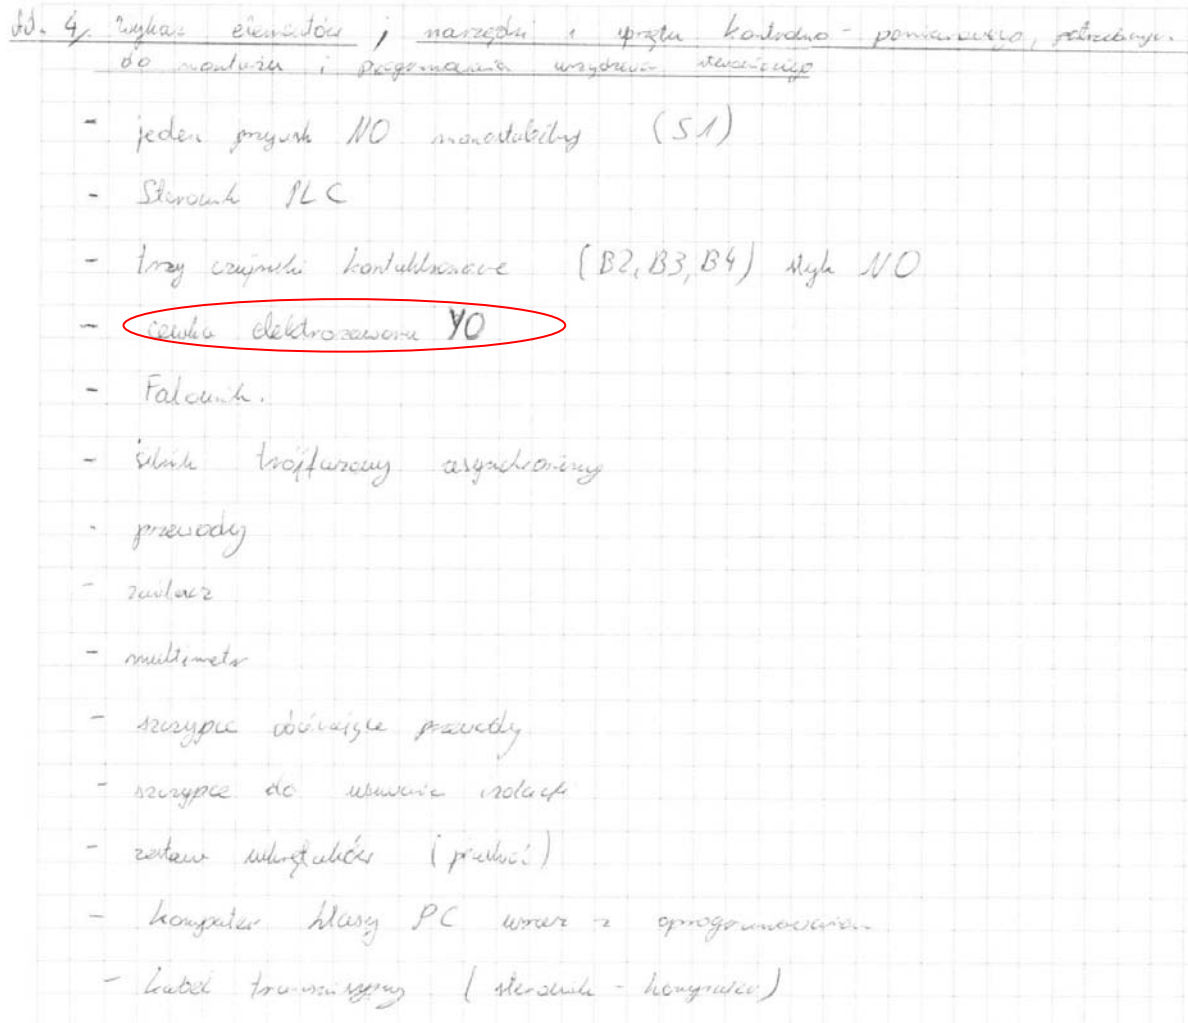 Ad. 4/. Wykaz elementów, narzędzi i sprzętu kontrolno - pomiarowego, potrzebnych
do montażu i programowania urządzenia sterującego
- jeden przycisk NO monostabilny (S1)
- Sterownik PLC
- trzy czujniki kontaktronowe (B2, B3, B4) styk NO
- cewka elektrozaworu Y0
- Falownik.
- silnik trójfazowy asynchroniczny
- przewody
- zasilacz
- multimetr
- szczypce obcinające przewody
- szczypce do usuwania izolacji
- zestaw wkrętaków
- komputer klasy PC wraz z oprogramowaniem
- kabel transmisyjny (sterownik - komputer)